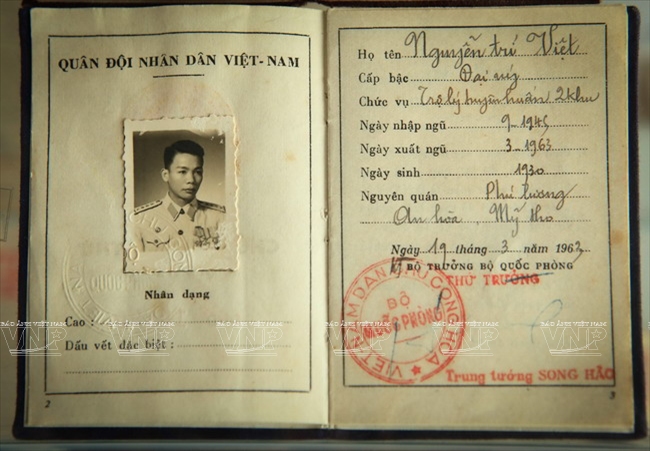 QUÂN ĐỘI NHÂN DÂN VIỆT-NAM
Nhân dạng
Cao :
Dấu vết đặc biệt :
2
Họ tên Nguyễn trí Việt
Cấp bậc Đại úy
Chức vụ Trợ lý huyên huấn 2 khu
Ngày nhập ngũ 9-1945
Ngày xuất ngũ 3-1963
Ngày sinh 1930
Nguyên quán Phú lương
An hòa, Mỹ tho
Ngày 19 tháng 3 năm 1963
BỘ TRƯỞNG BỘ QUỐC PHÒNG
THỨ TRƯỞNG
VIỆT NAM DÂN CHỦ CỘNG HÒA
BỘ
QUỐC PHÒNG
Trung tướng SONG HÀO
3
BÁO ẢNH VIỆT NAM
VNP
BÁO ẢNH VIỆT NAM
VNP
BÁO ẢNH VIỆT NAM
VNP
BÁO ẢNH VIỆT NAM
VNP